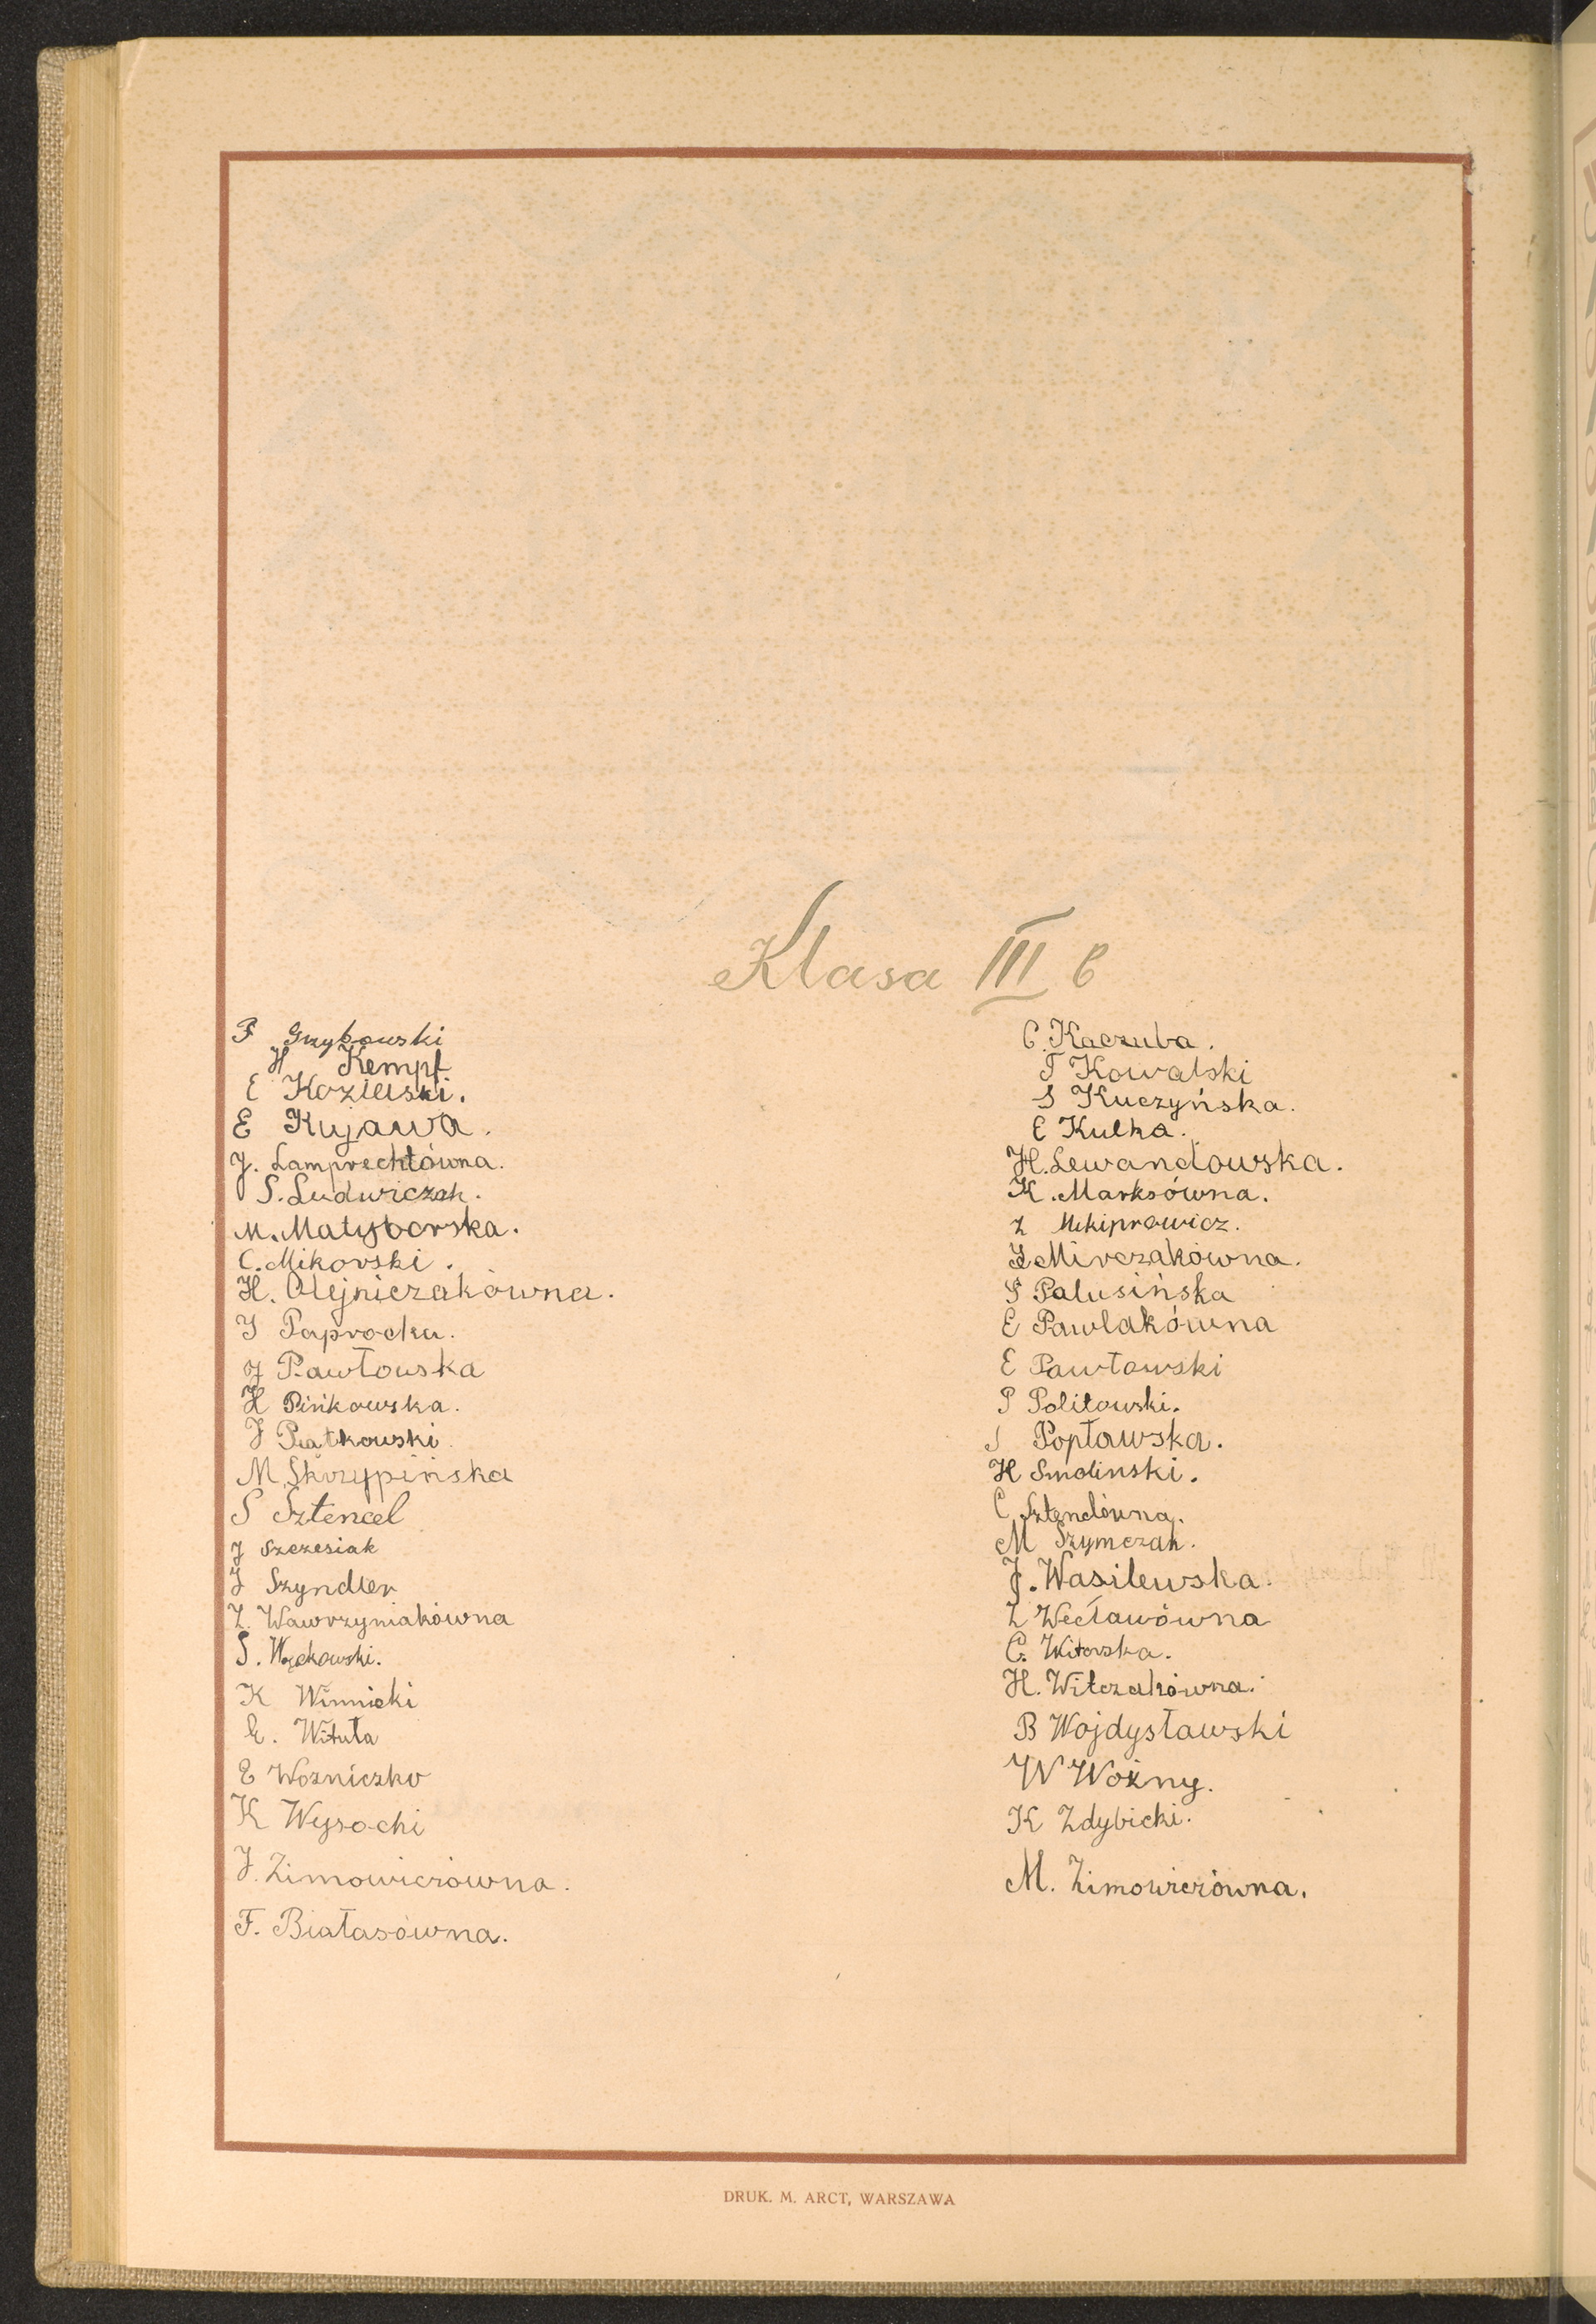 Klasa III b
F Grzybowski
H Kempf
E Kozielski.
E Kujawa.
J. Lamprechtówna.
S. Ludwiczak.
M. Matyborska.
C. Mikorski.
H. Olejniczakówna.
I Paprocka.
J Pawłowska
H Pińkowska.
J Piątkowski.
M Skrzypińska
S Sztencel
J Szczesiak
J Szyndler
Z. Wawrzyniakówna
S. Wąckowski.
K Winnicki
E. Wituła
E Wozniczko
K Wysocki
J. Zimowiczówna.
F. Białasówna.
C. Kaczuba.
T Kowalski
S Kuczyńska.
E Kulka.
H. Lewandowska.
K. Marksówna.
Z
Mirczakówna.
S Palusińska
E Pawlakówna
E Pawławski
P Politowski.
J Popławska.
H Smolinski.
C Sztenclówna.
M Szymczak.
J. Wasilewska.
Z Wecławówna
C. Witorska.
H. Witczakówna.
B Wojdysławski
W Woźny.
K Zdybicki.
M. Zimowiczówna.
DRUK. M. ARCT, WARSZAWA